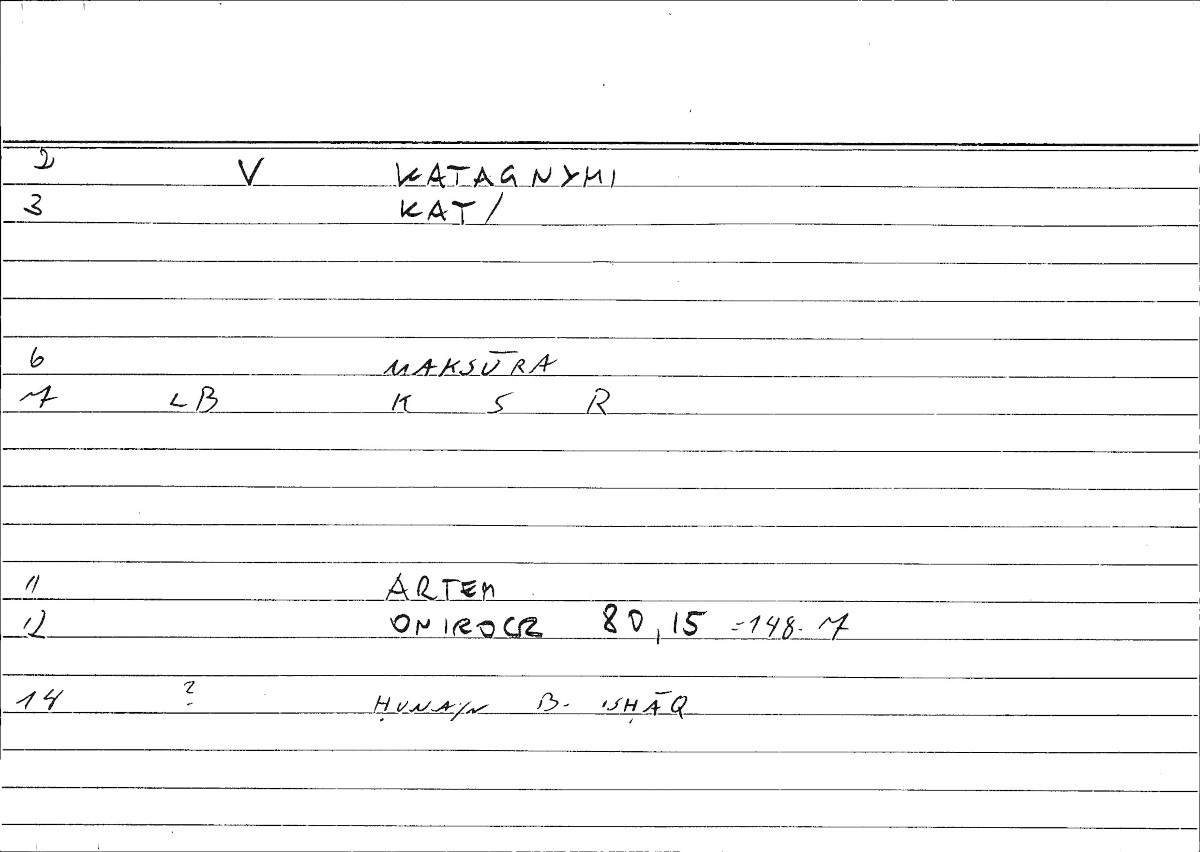 2 V KATAGNYMI
3 KAT/
6 MAKSŪRA
7 LB K S R
11 ARTEM
12 ONIROCR 80,15 =148.7
14 ? ḤUNAYN B. ISḤĀQ